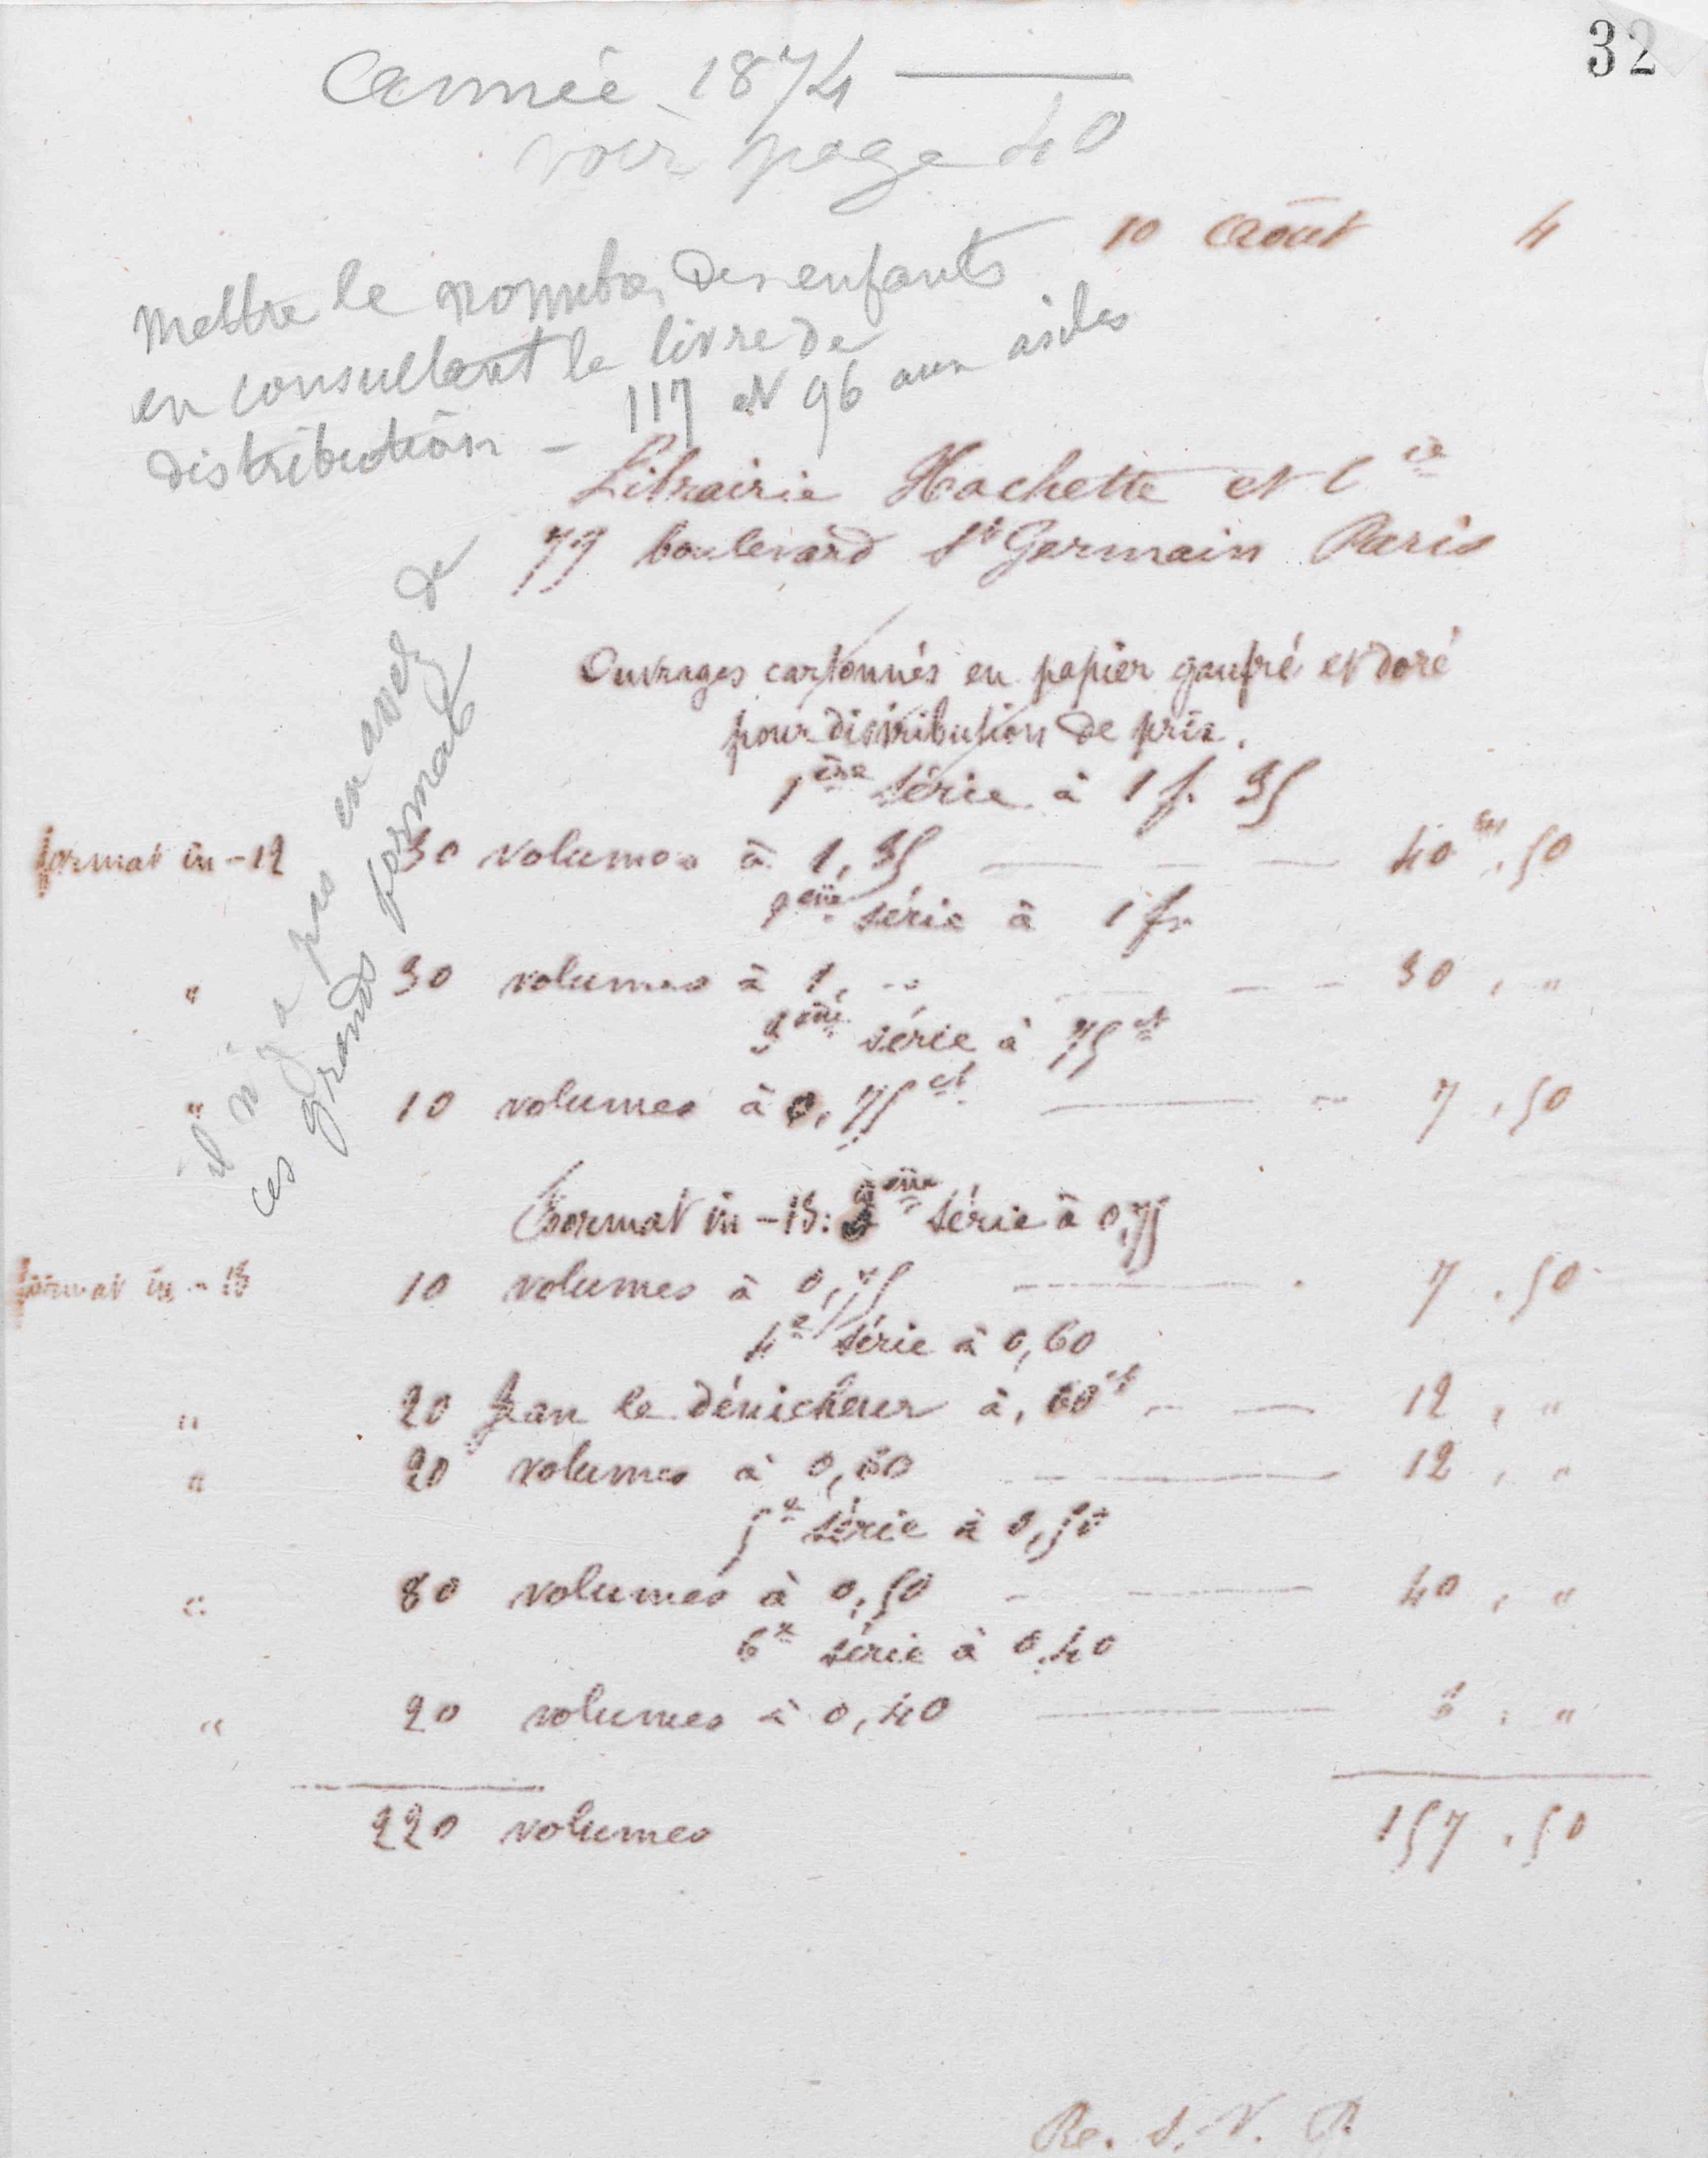 32
Année 1874
voir page 40
10 Août 4
Mettre le nombre des enfants
en consultant le livre de
distribution - 117 et 96 aux asiles
Librairie Hachette et Cie
79 boulevard St Germain Paris
il n'y a pas eu assez de
ces grands formats
Ouvrages cartonnés en papier gaufré et doré
pour distribution de prix.
1ère série à 1 f. 35
format in-12 30 volumes à 1,35 40 .50
2ème série à 1 fr
" 30 volumes à 1, " 30 , "
3ème série à 75 ct
" 10 volumes à 0,75 ct 7 ,50
Format in-18: 3ème série à 0,75
format in-18 10 volumes à 0,75 7 .50
4e série à 0,60
" 20 Jean le dénicheur à ,60 ct 12 , "
" 20 volumes à 0,60 12 , "
5e série à 0,50
" 80 volumes à 0,50 40 , "
6e série à 0,40
" 20 volumes à 0,40 8 , "
220 volumes 157 .50
R. S. V. P.